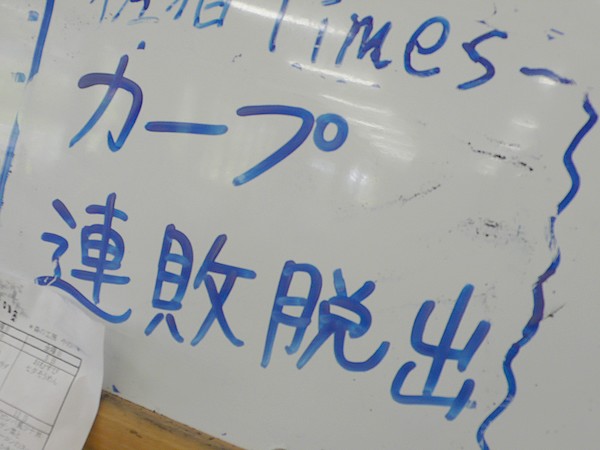 Times
カープ
連敗脱出